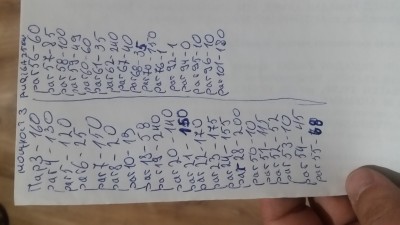 мощност 3
Пар3-160
par4-130
par5-120
par6-25
par7-110
par8-20
par10-19
par13-58
par19-240
par20-140
par21-150
par22-170
par23-175
par24-155
par28-100
par50-10
par51-115
par52-52
par53-10
par54-45
par55-68
par56-60
par57-85
par58-100
par59-49
par60-60
par61-35
par62-240
par67-40
par68-35
par70-150
par76-1
par92-1
par94-0
par95-00
par96-10
par101-180